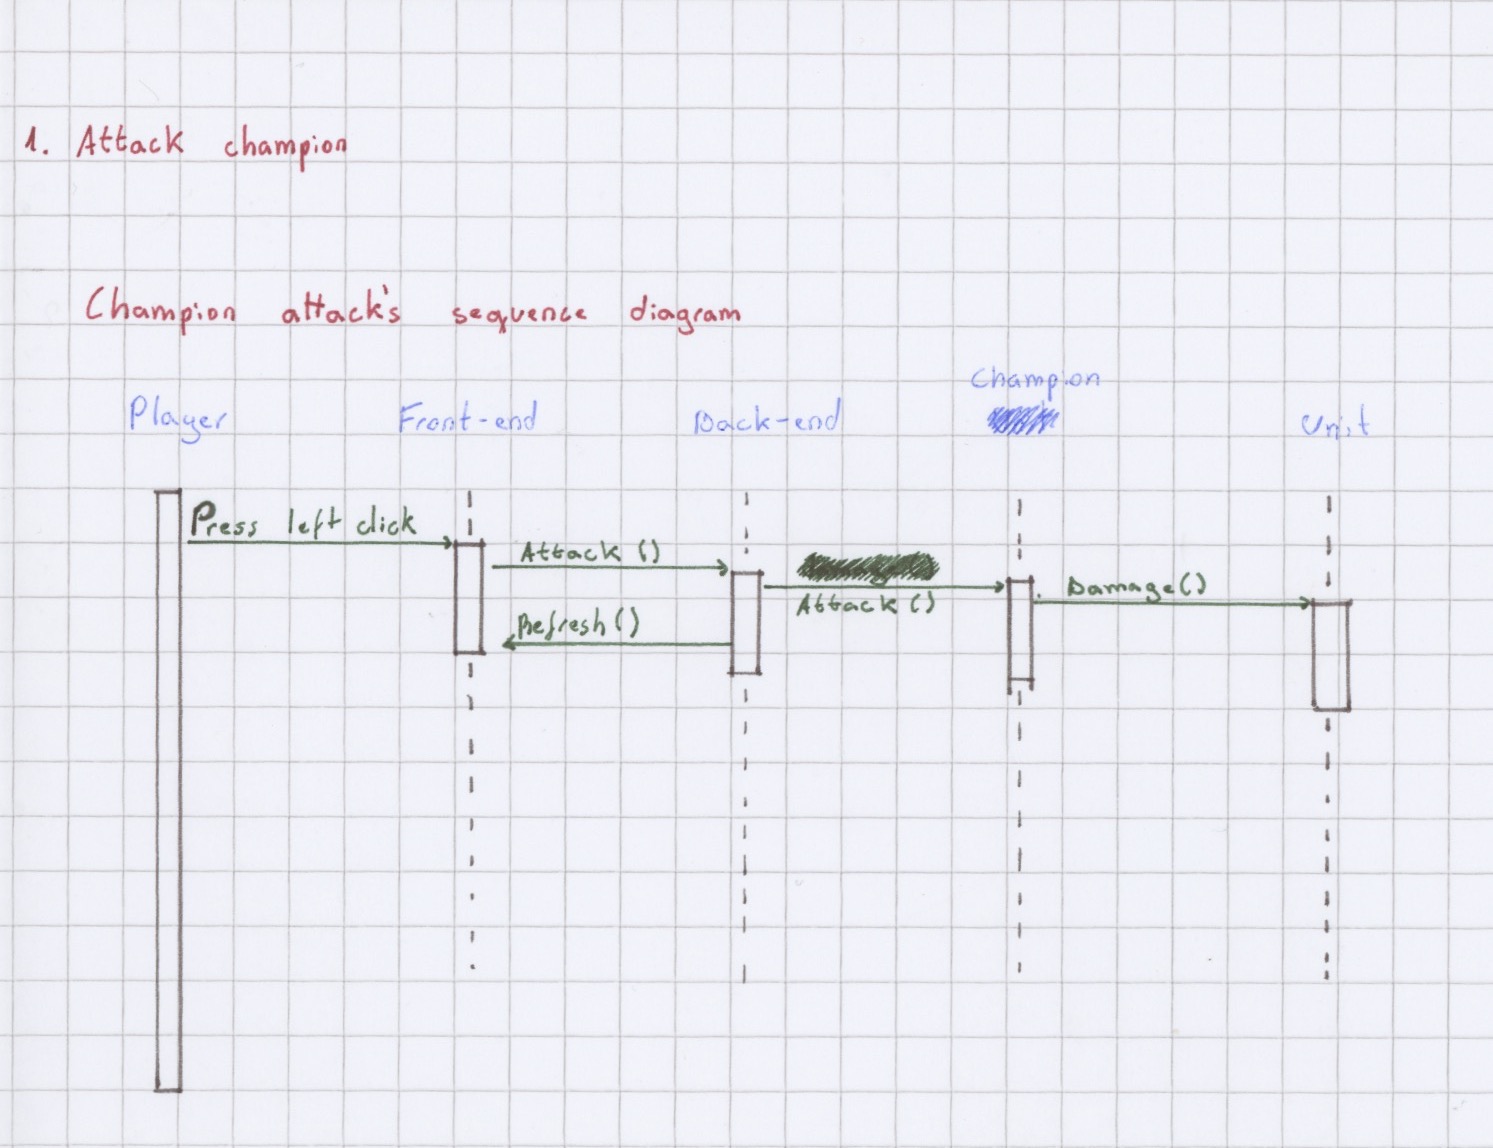 1. Attack champion
Champion attack's sequence diagram
Player Front-end Back-end Champion Unit
Press left click
Attack ()
Attack ()
Damage()
Refresh()